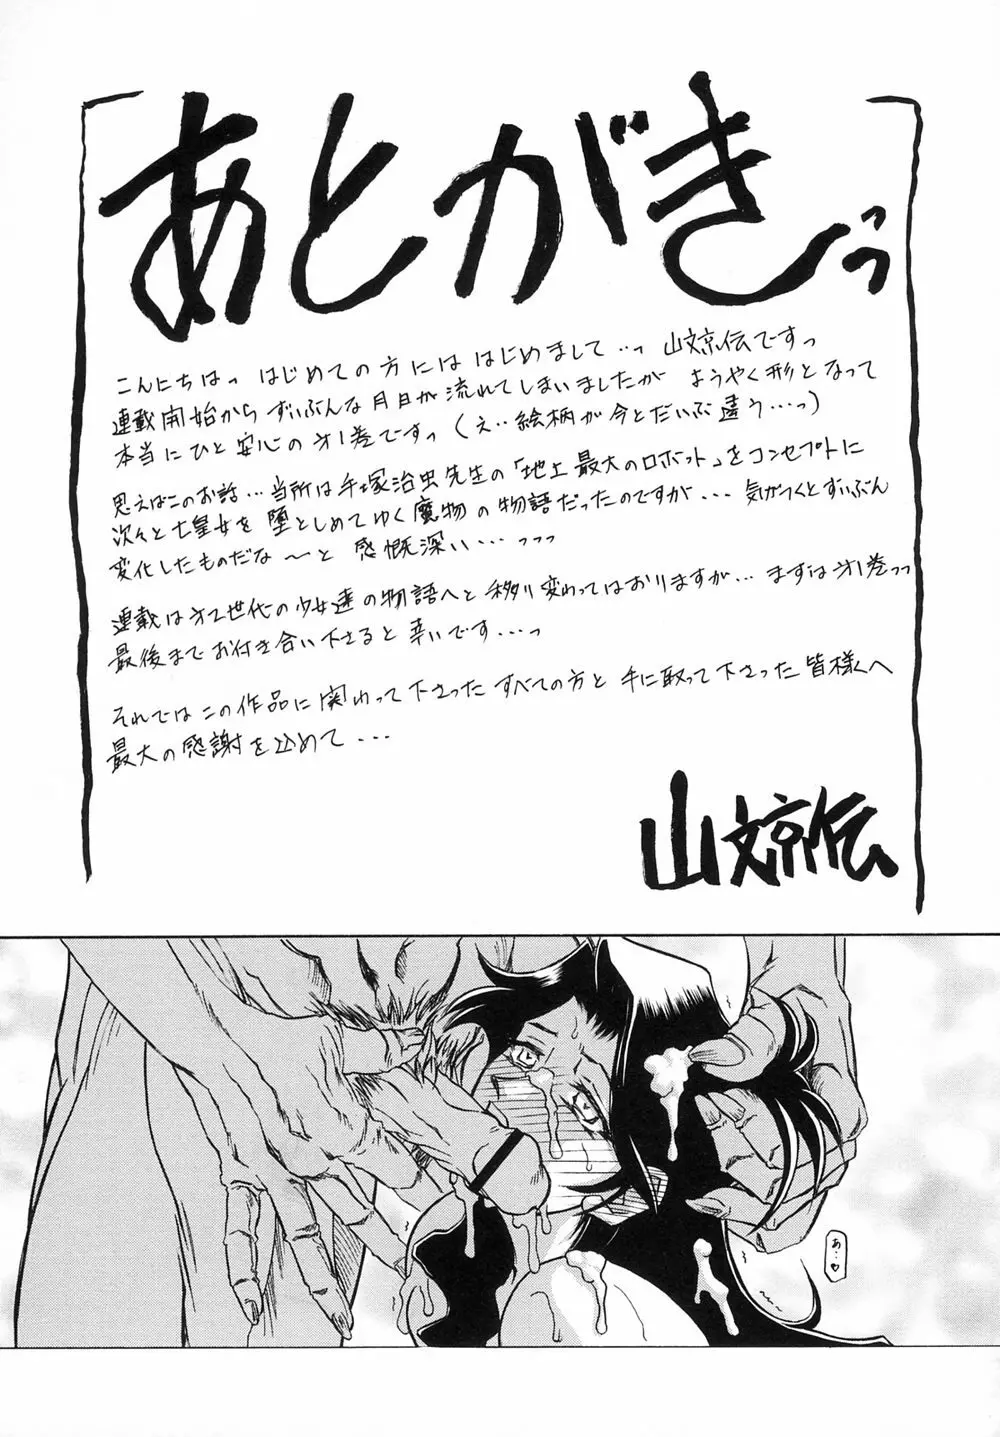 あとがきっ
こんにちはっ はじめての方には はじめまして‥っ 山文京伝ですっ
連載開始から ずいぶんな月日が流れてしまいましたが ようやく形となって
本当にひと安心の才1巻ですっ (え‥絵柄が今とだいぶ違う…っ)
思えばこのお話…当所は手塚治虫先生の「地上最大のロボット」をコンセプトに
次々と七皇女を 堕としめてゆく魔物の物語だったのですが... 気がつくとずいぶん
変化したものだな〜と 感慨深い...っっっ
連載は才2世代の少女達の物語へと移り変わってはおりますが... まずは才1巻っっ
最後までお付き合い下さると 幸いです...っ
それでは この作品に関わって下さったすべての方と 手に取って下さった皆様へ
最大の感謝を込めて...
山文京伝
あ…♥